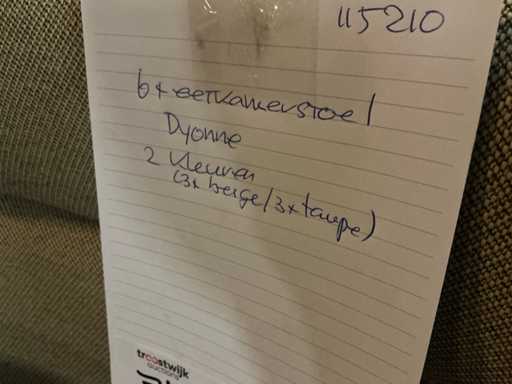 115210
6x eetkamerstoel
Dyonne
2 kleuren
(3x beige/3x taupe)
troostwijk
auctions